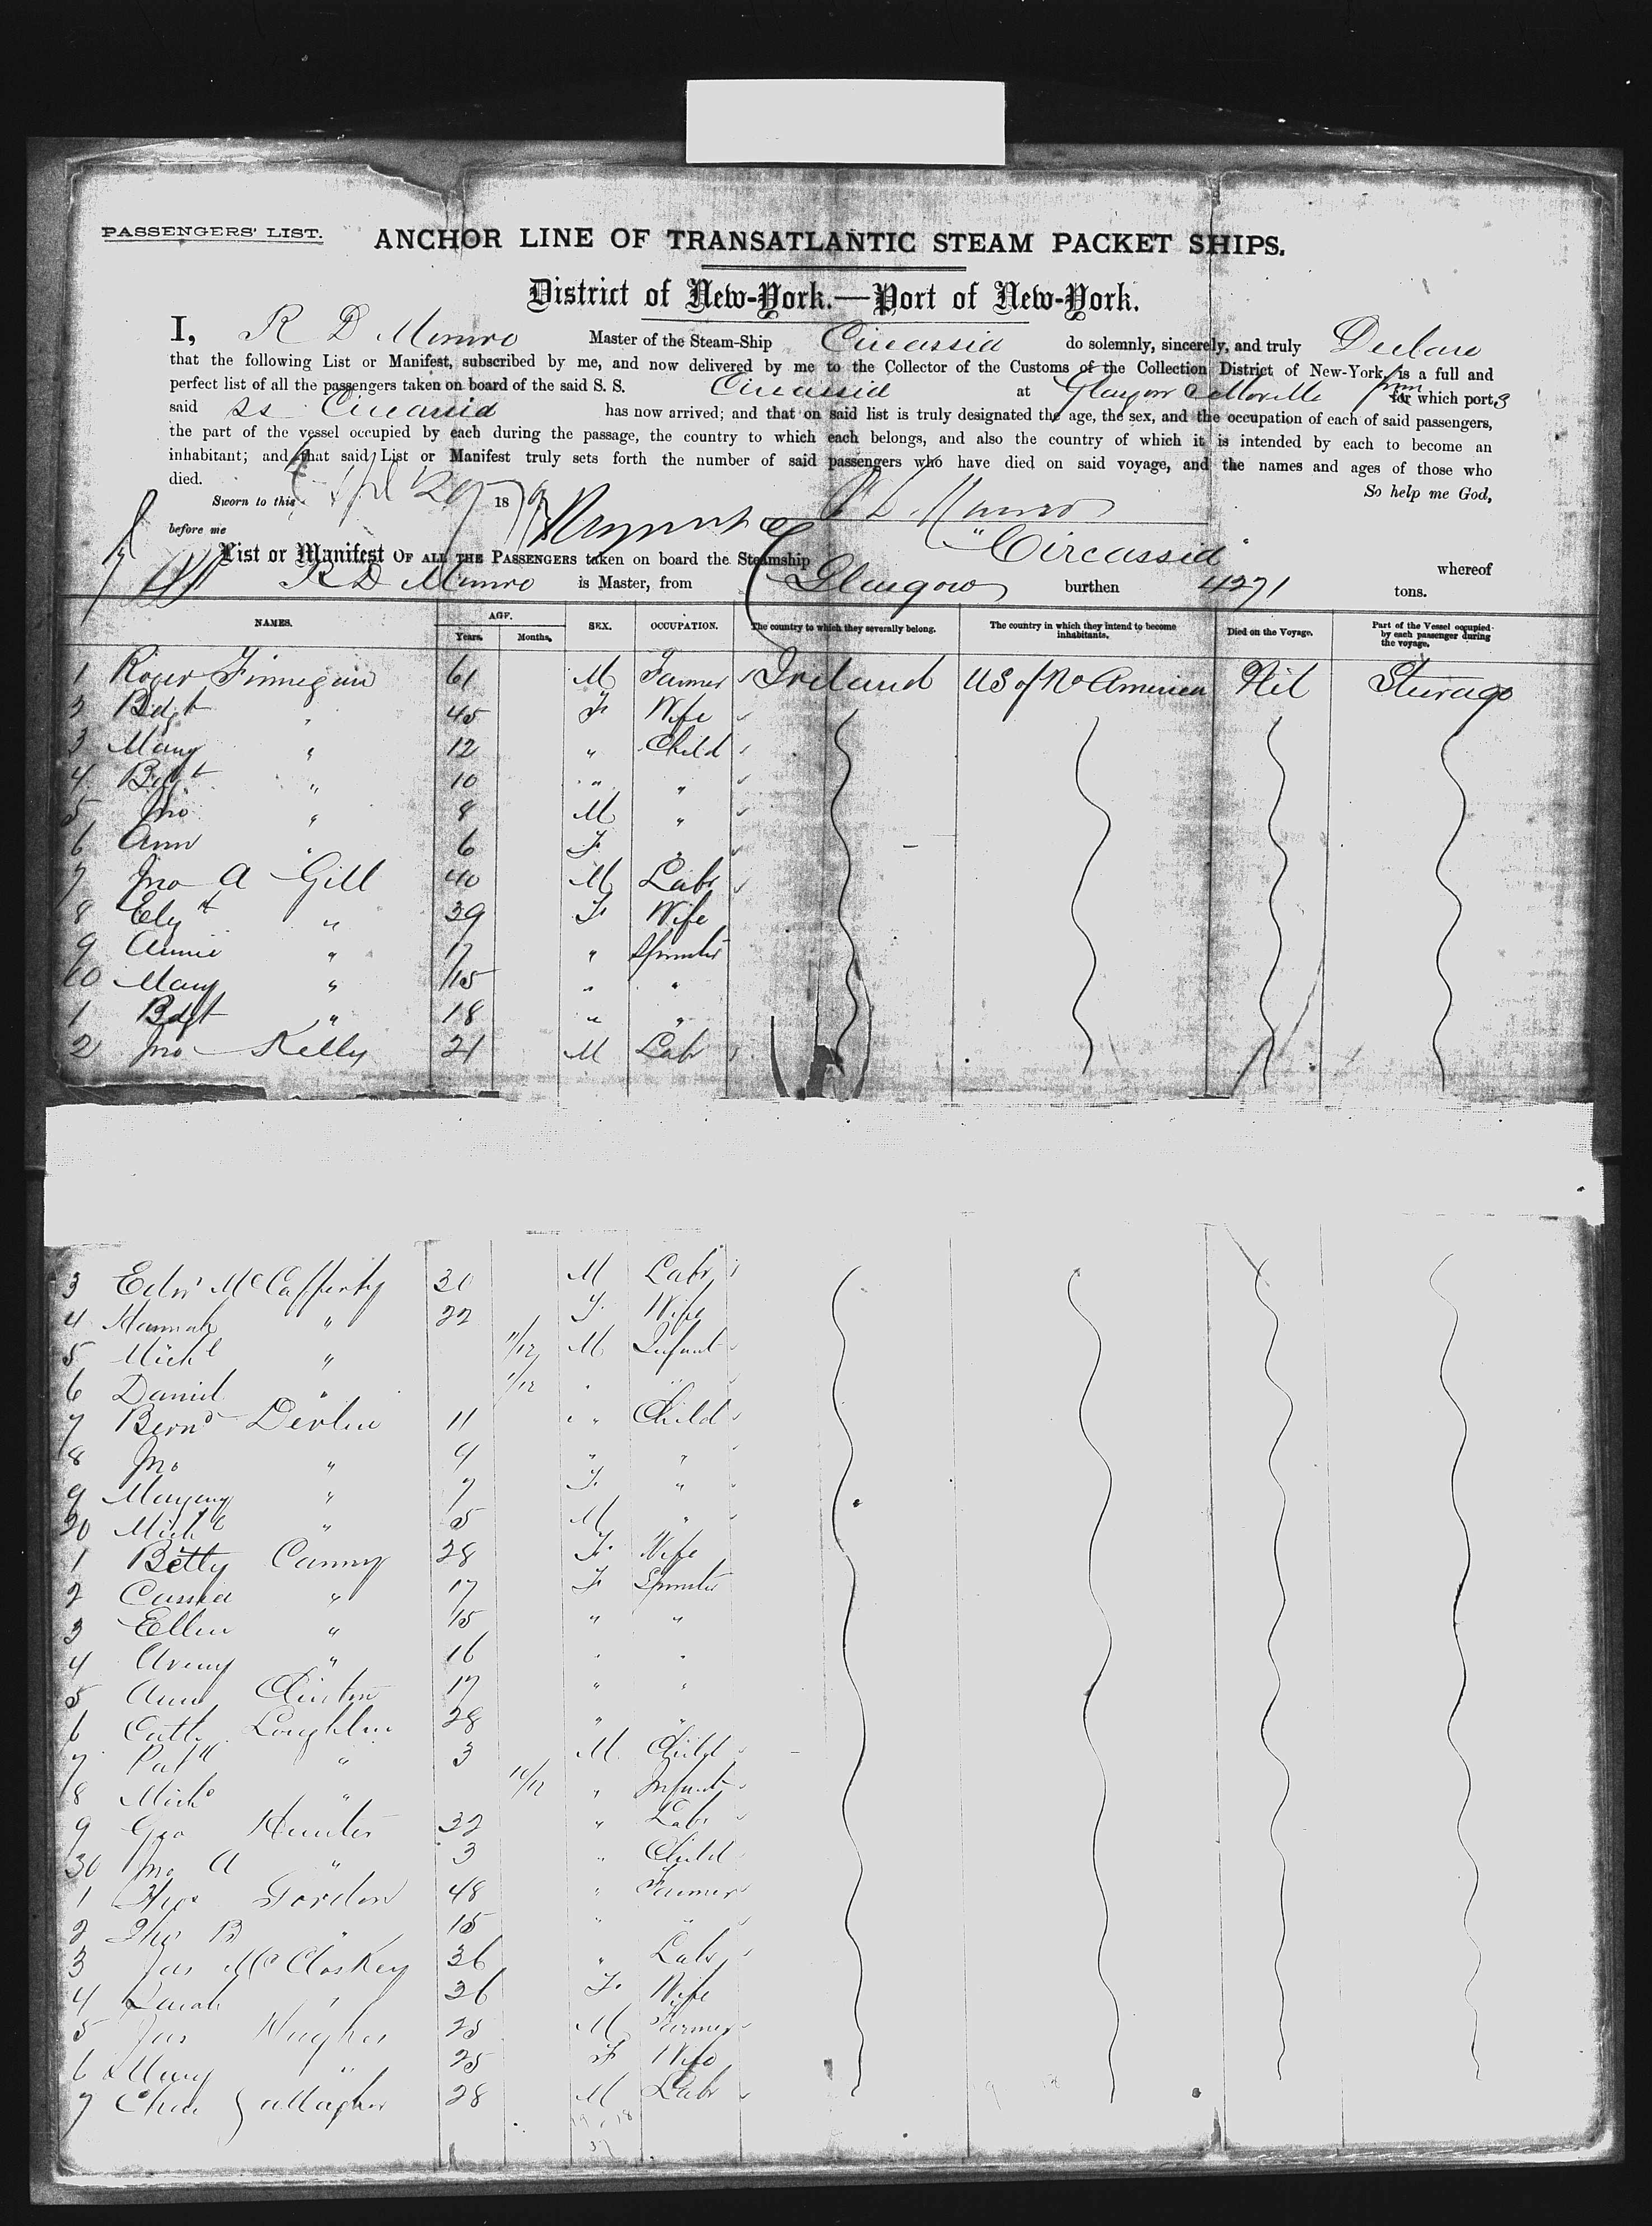 PASSENGERS' LIST.
ANCHOR LINE OF TRANSATLANTIC STEAM PACKET SHIPS.
District of New-York.—Port of New-York.
I, R D Munro Master of the Steam-Ship Circassia do solemnly, sincerely, and truly Declare
that the following List or Manifest, subscribed by me, and now delivered by me to the Collector of the Customs of the Collection District of New-York, is a full and
perfect list of all the passengers taken on board of the said S. S. Circassia at Glasgow & Moville from
said SS Circassia has now arrived; and that on said list is truly designated the age, the sex, and the occupation of each of said passengers, for which port s
the part of the vessel occupied by each during the passage, the country to which each belongs, and also the country of which it is intended by each to become an
inhabitant; and that said List or Manifest truly sets forth the number of said passengers who have died on said voyage, and the names and ages of those who
died. So help me God,
Sworn to this Apl 29 1879 R D. Munro
before me
List or Manifest OF ALL THE PASSENGERS taken on board the Steamship "Circassia" whereof
R D Munro is Master, from Glasgow burthen 4271 tons.
NAMES. AGE. Years. Months. SEX. OCCUPATION. The country to which they severally belong. The country in which they intend to become inhabitants. Died on the Voyage. Part of the Vessel occupied by each passenger during the voyage.
1 Roger Finnegan 61 M Farmer Ireland US of No America Nil Steerage
2 Bdgt " 45 F Wife
3 Mary " 12 " Child
4 Bdgt " 10 " "
5 Jno " 8 M "
6 Ann " 6 F "
7 Jno A Gill 40 M Labr
8 Elizth " 39 F Wife
9 Annie " 17 " Spinster
10 Mary " 15 " "
1 Bdgt " 18 " "
2 Jno Kelly 21 M Labr
3 Edwd McCafferty 30 M Labr
4 Hannah " 22 F Wife
5 Michl " 11/12 M Infant
6 Daniel " 1/12 " "
7 Bernd Devlin 11 " Child
8 Jno " 9 " "
9 Margary " 7 F "
20 Michl " 5 M "
1 Betty Canny 28 F Wife
2 Cassia " 17 F Spinster
3 Ellen " 15 " "
4 " 16 " "
5 Ann Clinton 17 " "
6 Cath Loughlin 28 " "
7 Patk " 3 M Child
8 Michl " 10/12 " Infant
9 Geo Hunter 32 " Labr
30 Jno A " 3 " Child
1 Gordon 48 " Farmer
2 Thos B " 15 " "
3 Jas McCloskey 36 " Labr
4 Sarah " 26 F Wife
5 Jas Hughes 25 M Farmer
6 Mary " 25 F Wife
7 Chas Gallagher 28 M Labr
19 18
37